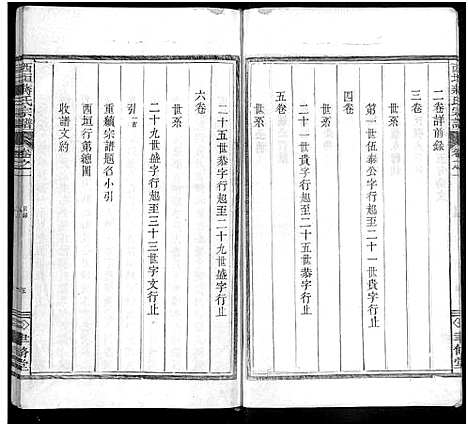 二卷詳前錄
三卷
世系
第一世伍泰公字行起至二十一世貴字行止
四卷
世系
二十一世貴字行起至二十五世恭字行止
五卷
世系
二十五世恭字行起至二十九世盛字行止
六卷
世系
二十九世盛字行起至三十三世字文行止
引言
重續宗譜題名小引
西垣行第總圖
收譜文約
西垣蔣氏宗譜
卷之一